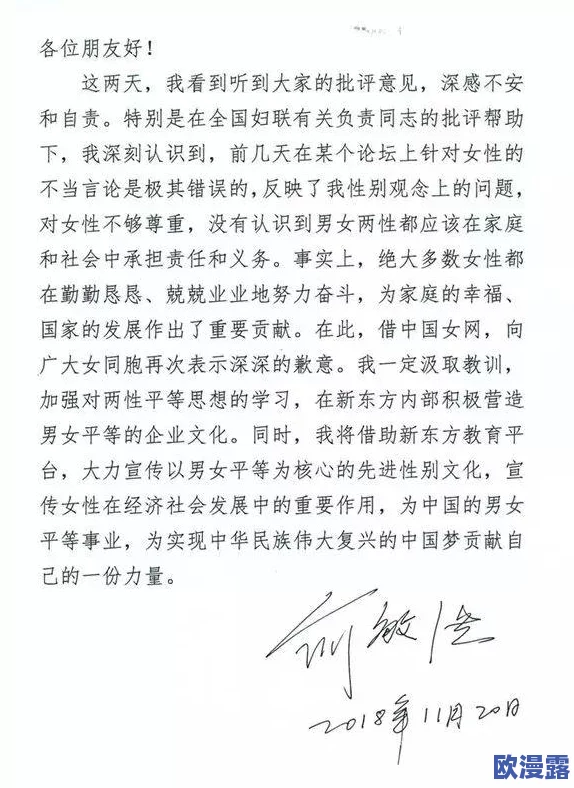 各位朋友好！
这两天，我看到听到大家的批评意见，深感不安
和自责。特别是在全国妇联有关负责同志的批评帮助
下，我深刻认识到，前几天在某个论坛上针对女性的
不当言论是极其错误的，反映了我性别观念上的问题，
对女性不够尊重，没有认识到男女两性都应该在家庭
和社会中承担责任和义务。事实上，绝大多数女性都
在勤勤恳恳、兢兢业业地努力奋斗，为家庭的幸福、
国家的发展作出了重要贡献。在此，借中国女网，向
广大女同胞再次表示深深的歉意。我一定汲取教训，
加强对两性平等思想的学习，在新东方内部积极营造
男女平等的企业文化。同时，我将借助新东方教育平
台，大力宣传以男女平等为核心的先进性别文化，宣
传女性在经济社会发展中的重要作用，为中国的男女
平等事业，为实现中华民族伟大复兴的中国梦贡献自
己的一份力量。
俞敏洪
2018年11月20日
欧漫露